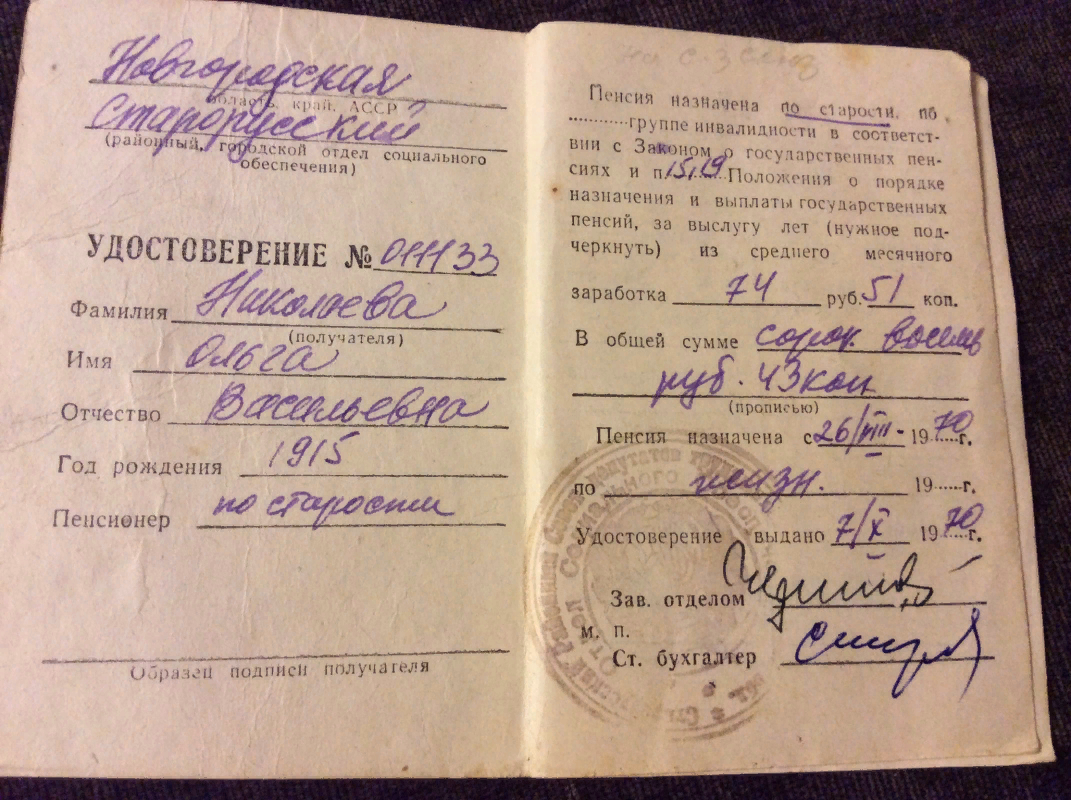 Новгородская
область, край, АССР
Старорусский
(районный, городской отдел социального
обеспечения)
УДОСТОВЕРЕНИЕ № 011133
Фамилия Николаева
(получателя)
Имя Ольга
Отчество Васильевна
Год рождения 1915
Пенсионер по старости
Образец подписи получателя
на с. 3
Пенсия назначена по старости, по
..........группе инвалидности в соответст-
вии с Законом о государственных пен-
сиях и п. 15,19 Положения о порядке
назначения и выплаты государственных
пенсий, за выслугу лет (нужное под-
черкнуть) из среднего месячного
заработка 74 руб. 51 коп.
В общей сумме сорок восемь
руб. 43 коп
(прописью)
Пенсия назначена с 26/VIII- 1970 г.
по жизн. 19......г.
Удостоверение выдано 7/X 1970 г.
Зав. отделом
м. п.
Ст. бухгалтер
Отдел Социального